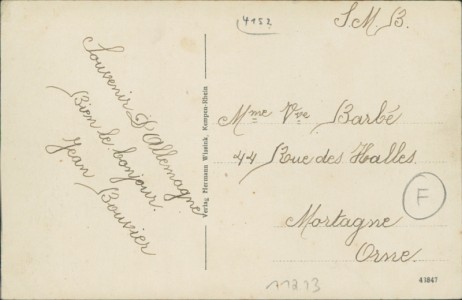 4152
S. M. B.
Souvenir D'Allemagne
Bien le bonjour.
Jean Bouvier
Verlag Hermann Wiesick, Kempen-Rhein
Mme Vve Barbé
44 Rue des Halles.
F
Mortagne
Orne.
41847